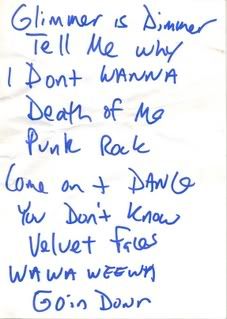 Glimmer is Dimmer
Tell Me why
I Dont WANNA
Death of Me
Punk Rock
Come on + DANCE
You Don't Know
Velvet Faces
WAWA WEEWA
Goin Down